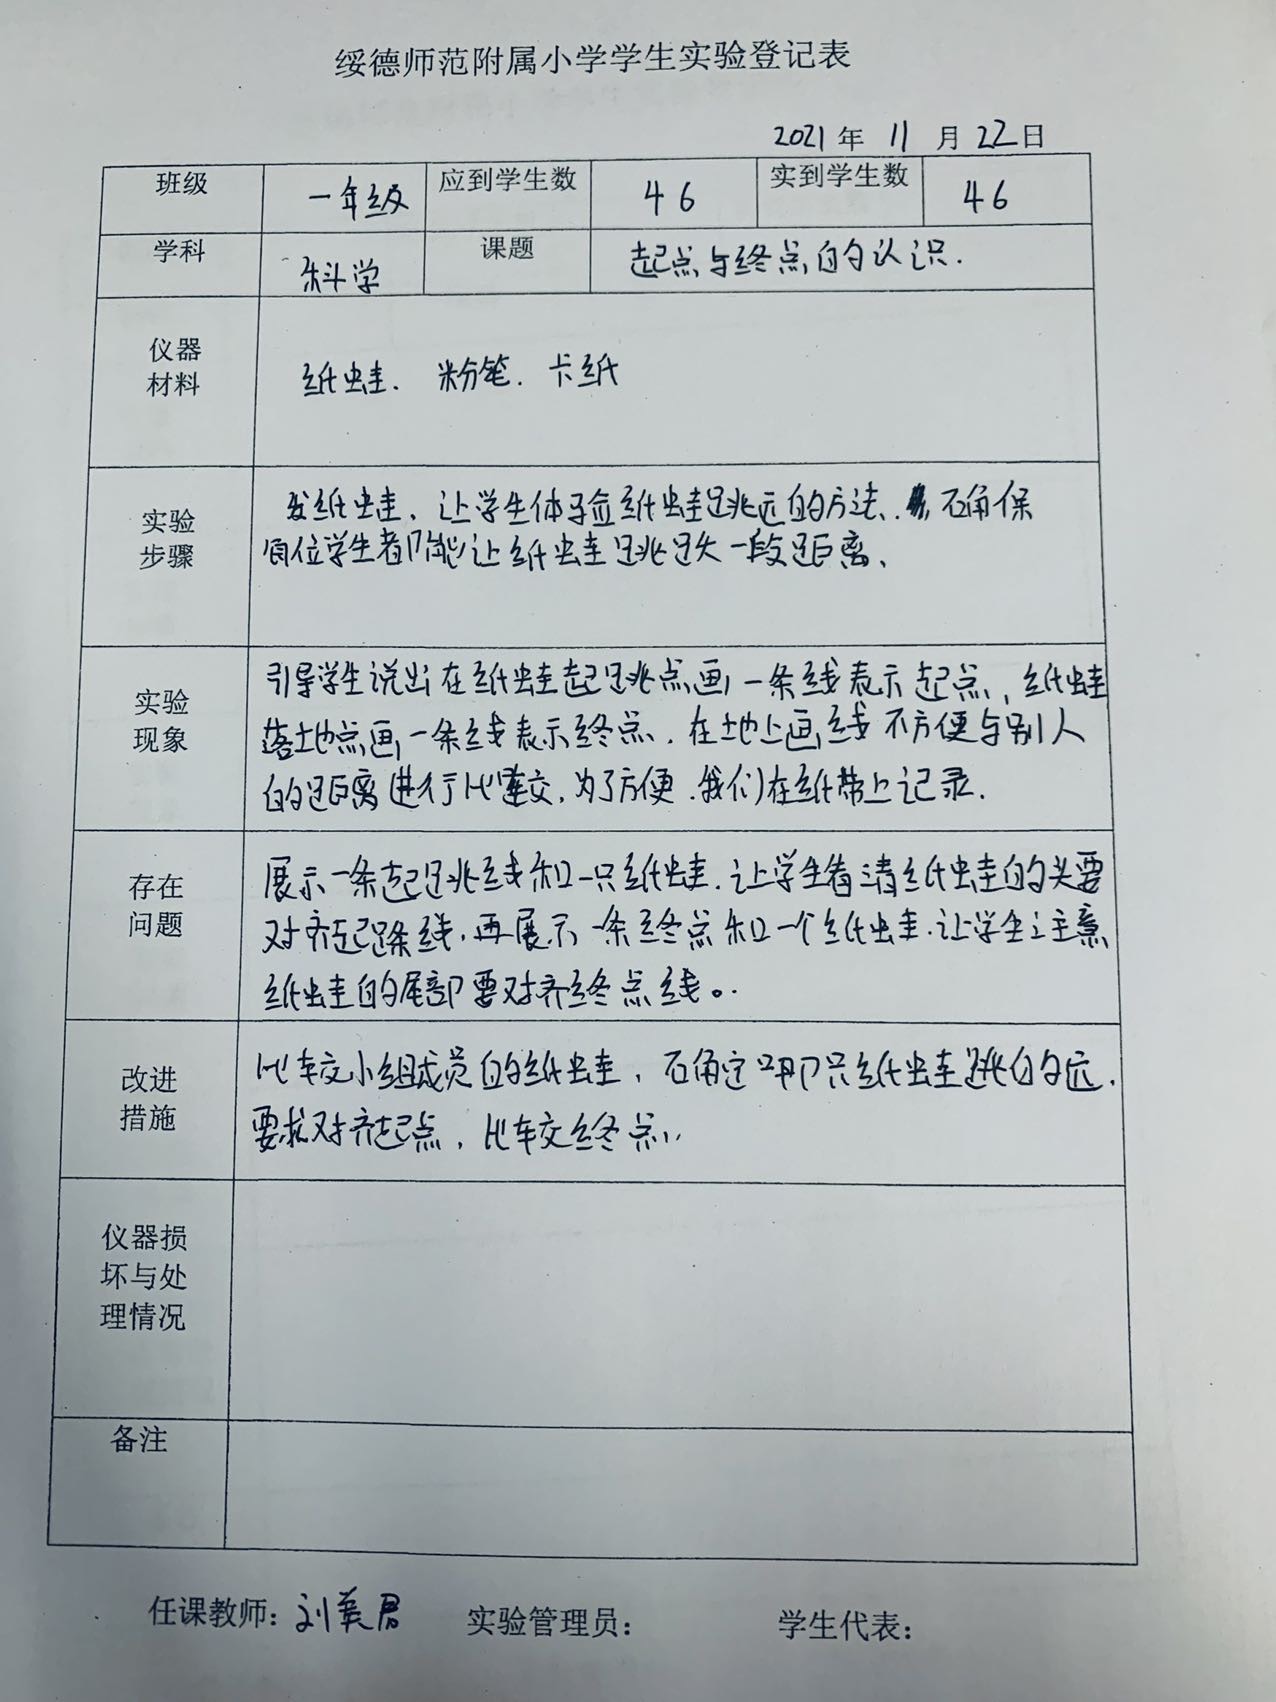 绥德师范附属小学学生实验登记表
2021年 11 月 22日
班级 一年级 应到学生数 46 实到学生数 46
学科 科学 课题 起点与终点的认识.
仪器
材料
纸蛙. 粉笔. 卡纸
实验
步骤
发纸蛙, 让学生体验纸蛙跳远的方法. 确保
每位学生都能让纸蛙跳跃一段距离、
实验
现象
引导学生说出在纸蛙起跳点画一条线表示起点, 纸蛙
落地点画一条线表示终点. 在地上画线不方便与别人
的距离进行比较, 为了方便. 我们在纸带上记录.
存在
问题
展示一条起跳线和一只纸蛙. 让学生看清纸蛙的头要
对齐起跳线, 再展示一条终点和一个纸蛙. 让学生注意
纸蛙的尾部要对齐终点线。
改进
措施
比较小组成员的纸蛙, 确定哪只纸蛙跳的远.
要求对齐起点, 比较终点.
仪器损
坏与处
理情况
备注
任课教师: 刘美君 实验管理员: 学生代表: